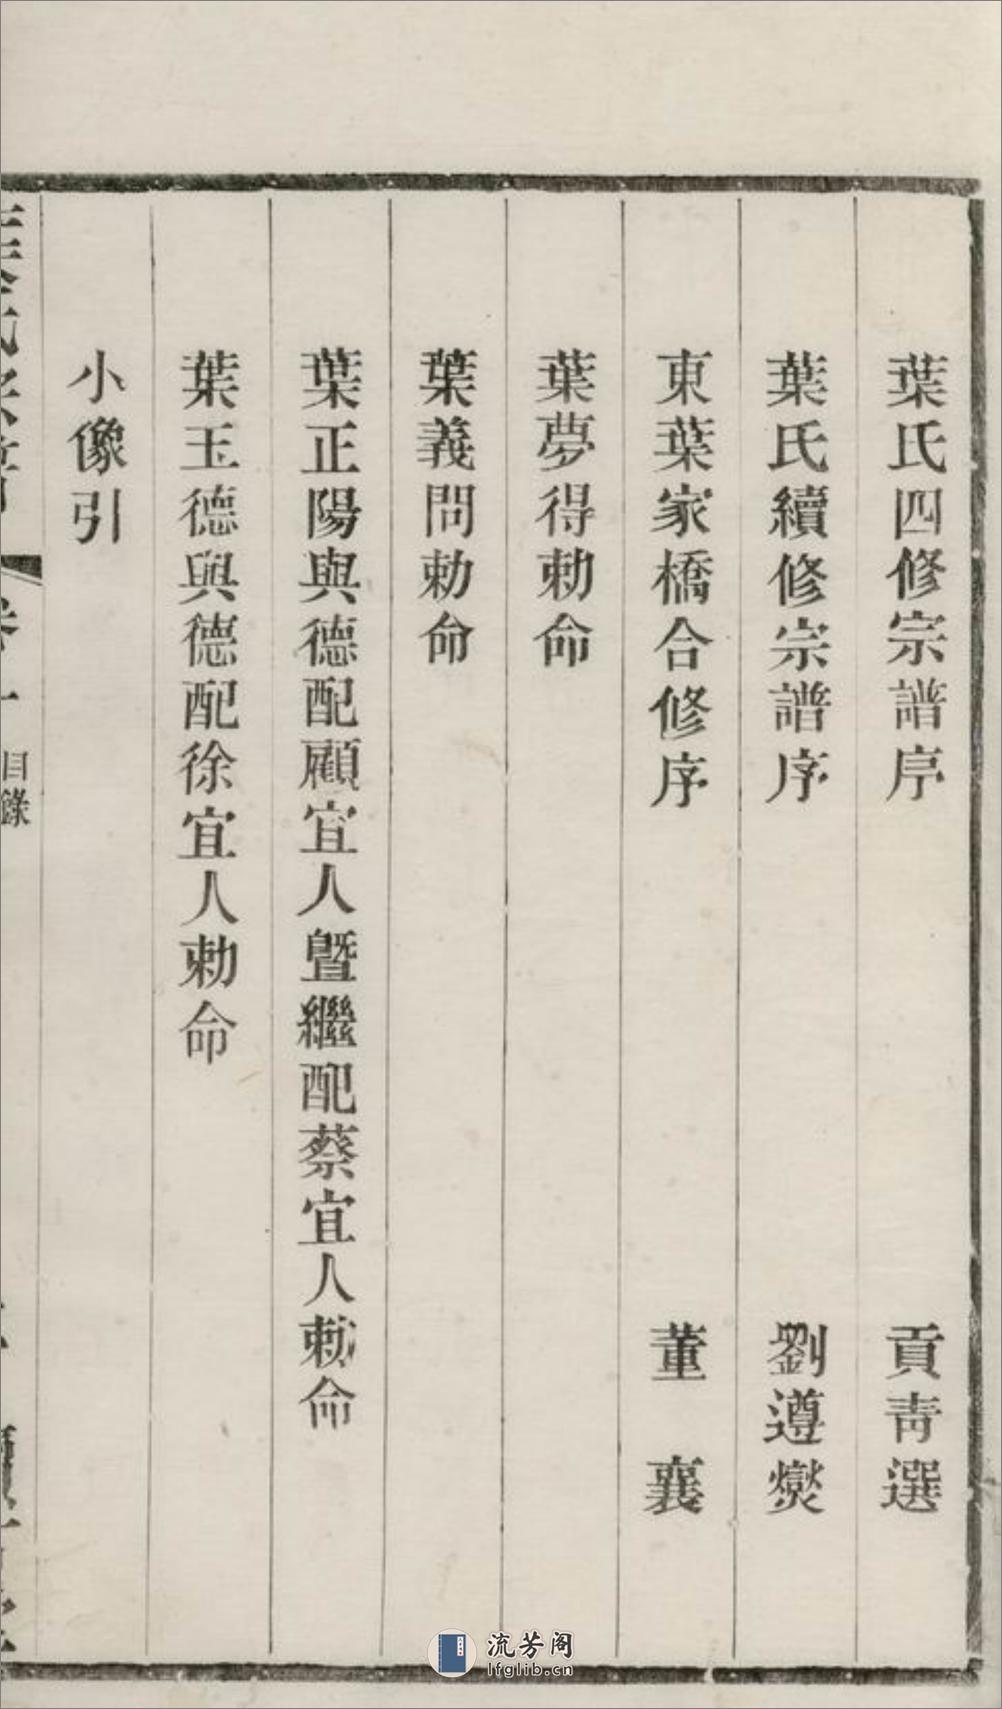 葉氏四修宗譜序 貢青選
葉氏續修宗譜序 劉遵燮
東葉家橋合修序 董襄
葉夢得勅命
葉義問勅命
葉正陽與德配顧宜人暨繼配蔡宜人勅命
葉玉德與德配徐宜人勅命
小像引
目錄
流芳阁
lfglib.cn